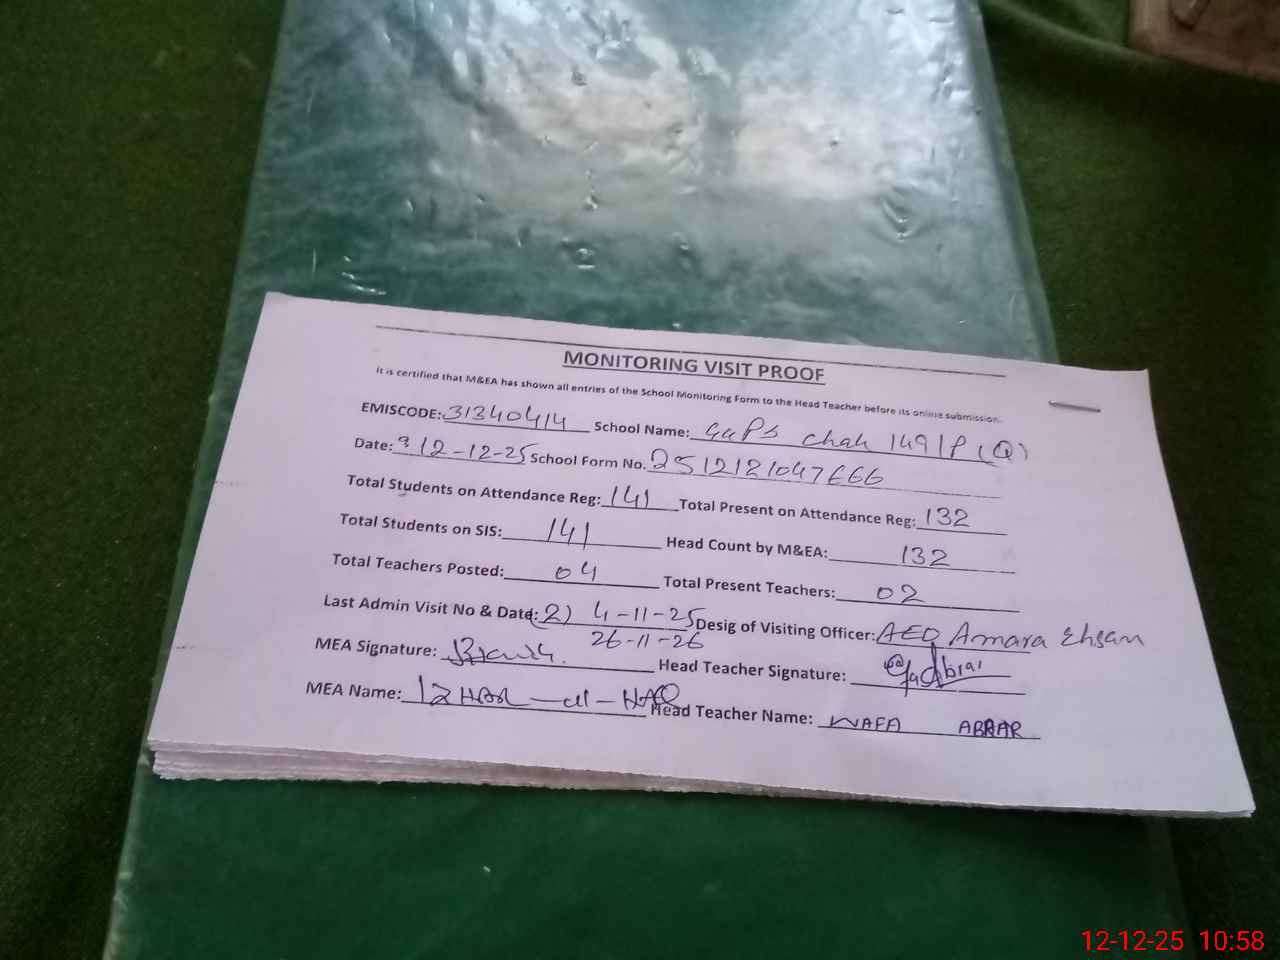 MONITORING VISIT PROOF
It is certified that M&EA has shown all entries of the School Monitoring Form to the Head Teacher before its online submission.
EMISCODE: 31340414 School Name: GGPS Chak 149/P (Q)
Date: 12-12-25 School Form No. 2512121047666
Total Students on Attendance Reg: 141 Total Present on Attendance Reg: 132
Total Students on SIS: 141 Head Count by M&EA: 132
Total Teachers Posted: 04 Total Present Teachers: 02
Last Admin Visit No & Date: (2) 4-11-25 Desig of Visiting Officer: AEO Amara Ehsan
26-11-26
MEA Signature: Head Teacher Signature:
MEA Name: IZHAR-ul-HAQ Head Teacher Name: WAFA ABRAR
12-12-25 10:58